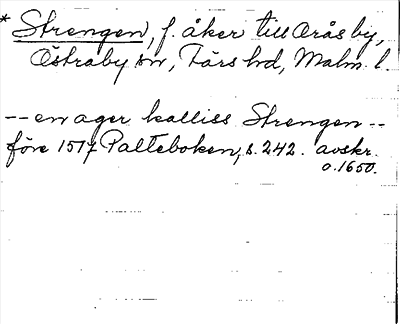 * Strengen, f. åker till Arås by,
Östraby sn, Färs hd, Malm. l.
-- en ager kalliss Strengen --
före 1517 Palteboken, s. 242. avskr.
o. 1650.